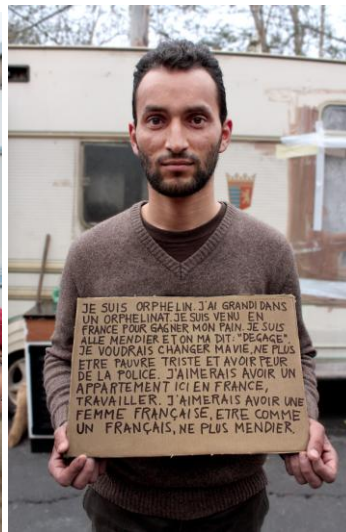 JE SUIS ORPHELIN. J'AI GRANDI DANS
UN ORPHELINAT. JE SUIS VENU EN
FRANCE POUR GAGNER MON PAIN. JE SUIS
ALLE MENDIER ET ON MA DIT: "DEGAGE".
JE VOUDRAIS CHANGER MA VIE, NE PLUS
ETRE PAUVRE TRISTE ET AVOIR PEUR
DE LA POLICE. J'AIMERAIS AVOIR UN
APPARTEMENT ICI EN FRANCE,
TRAVAILLER. J'AIMERAIS AVOIR UNE
FEMME FRANÇAISE, ETRE COMME
UN FRANÇAIS, NE PLUS MENDIER.